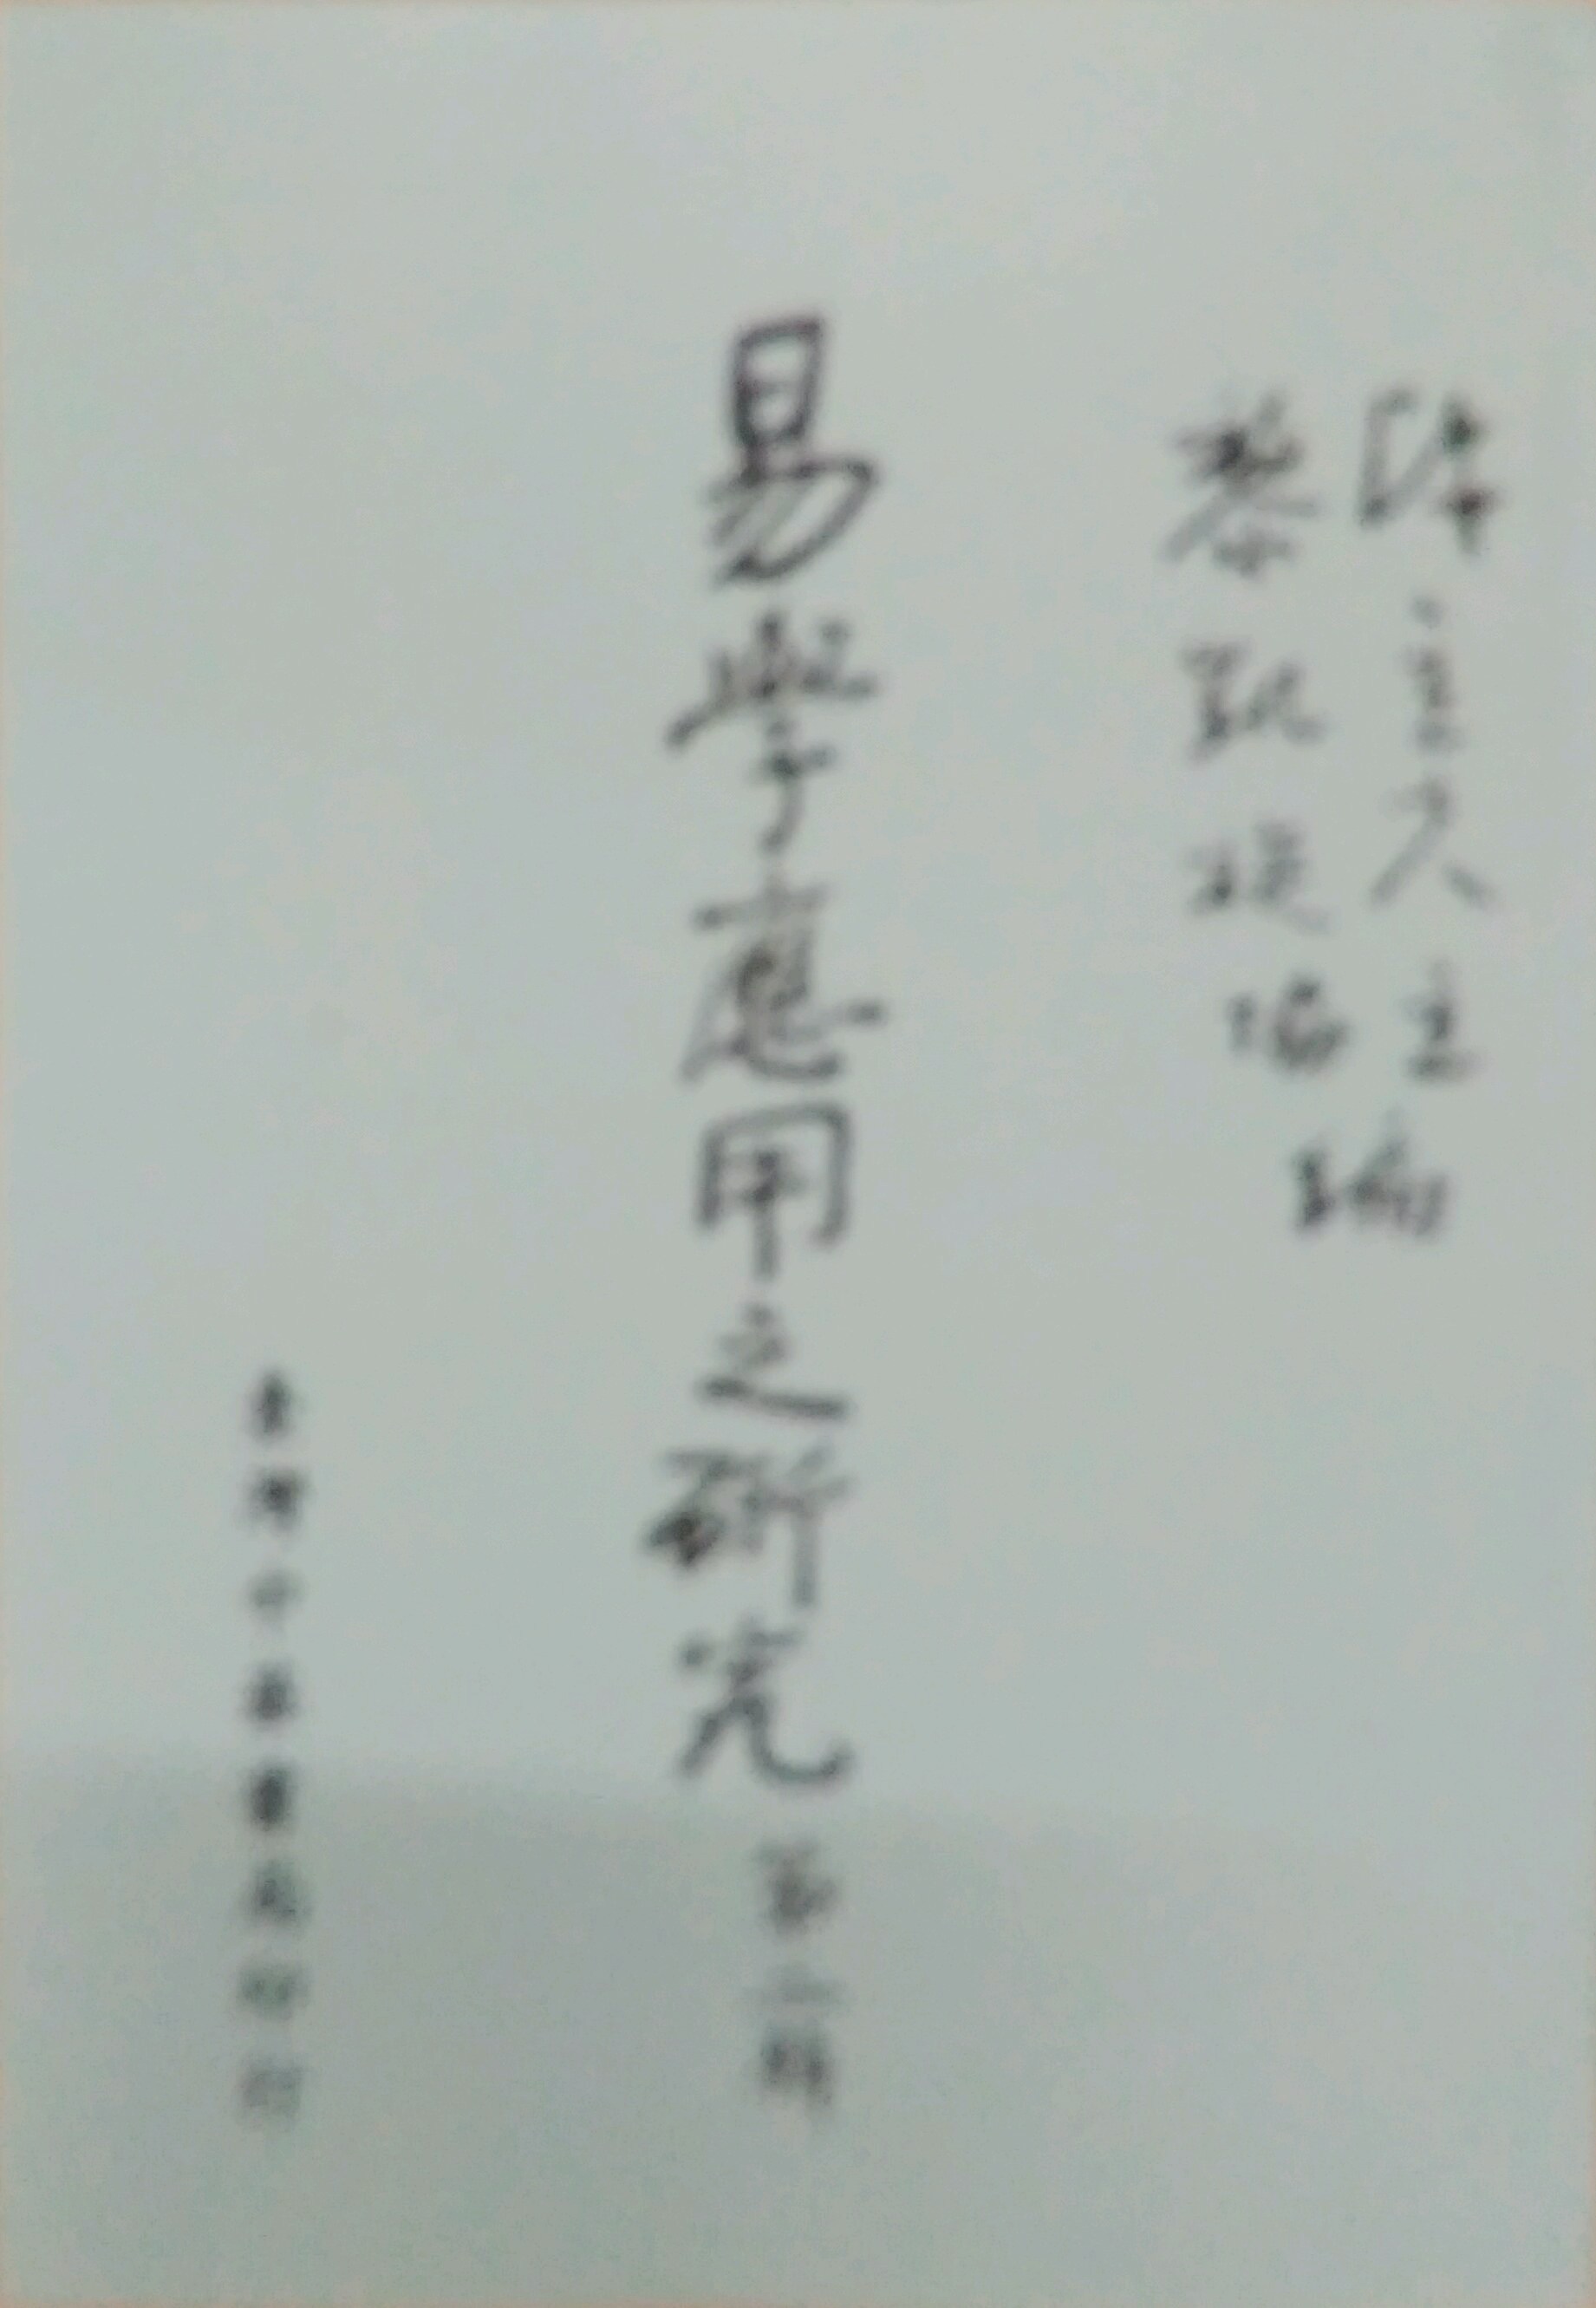 陳立夫主編
黎凱旋協
易學應用之研究 第二輯
臺灣中華書局印行